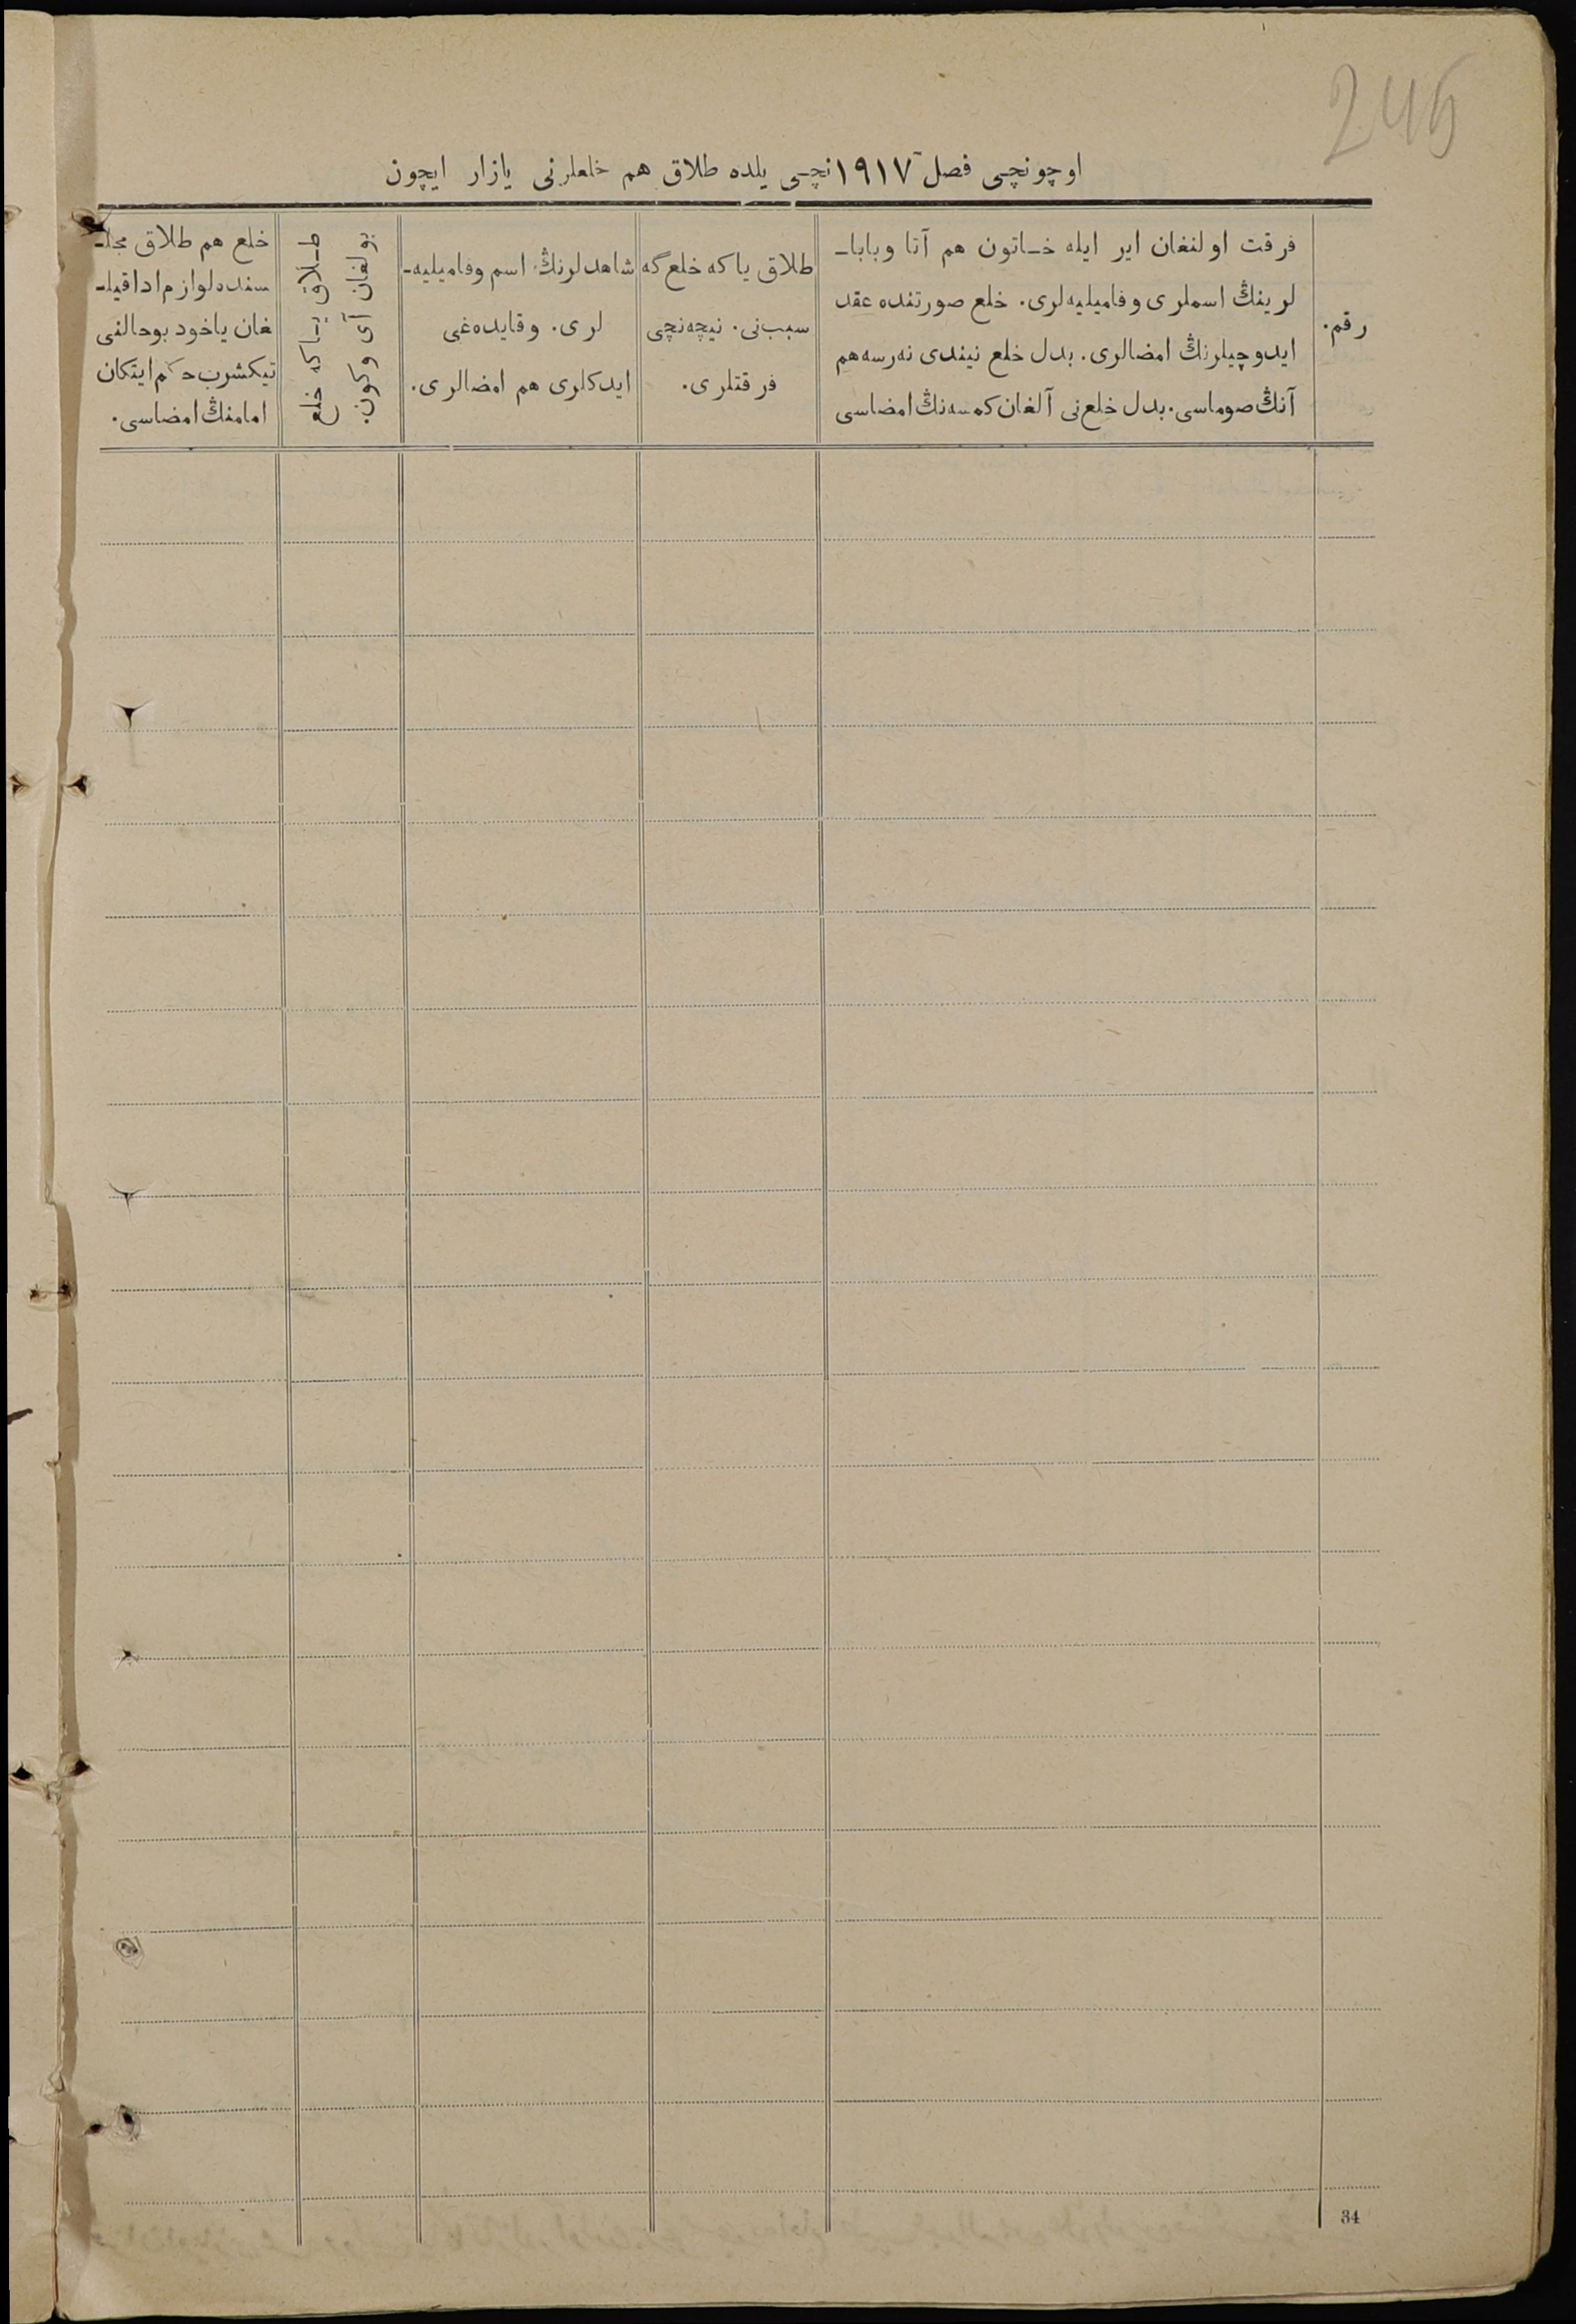 245
اوچونچی فصل ۱۹۱۷نچی یلده طلاق هم خلعلرنی یازار ایچون
رقم.
فرقت اولنغان ایر ایله خاتون هم آتا وبابا-
لرینڭ اسملری وفامیلیه‌لری. خلع صورتنده عقد
ایدوچیلرنڭ امضالری. بدل خلع نیندی نه‌رسه هم
آنڭ صوماسی. بدل خلع‌نی آلغان کمسه‌نڭ امضاسی
طلاق یاکه خلع‌گه
سبب‌نی. نیچه‌نچی
فرقتلری.
شاهدلرنڭ اسم وفامیلیه-
لری. وقایده‌غی
ایدکلری هم امضالری.
طلاق یاکه خلع
بولغان آی وکون.
خلع هم طلاق مجلـ
سنده لوازم ادا قیلـ
غان یاخود بوحالنی
تیکشرب حکم ایتکان
امامنڭ امضاسی.
34